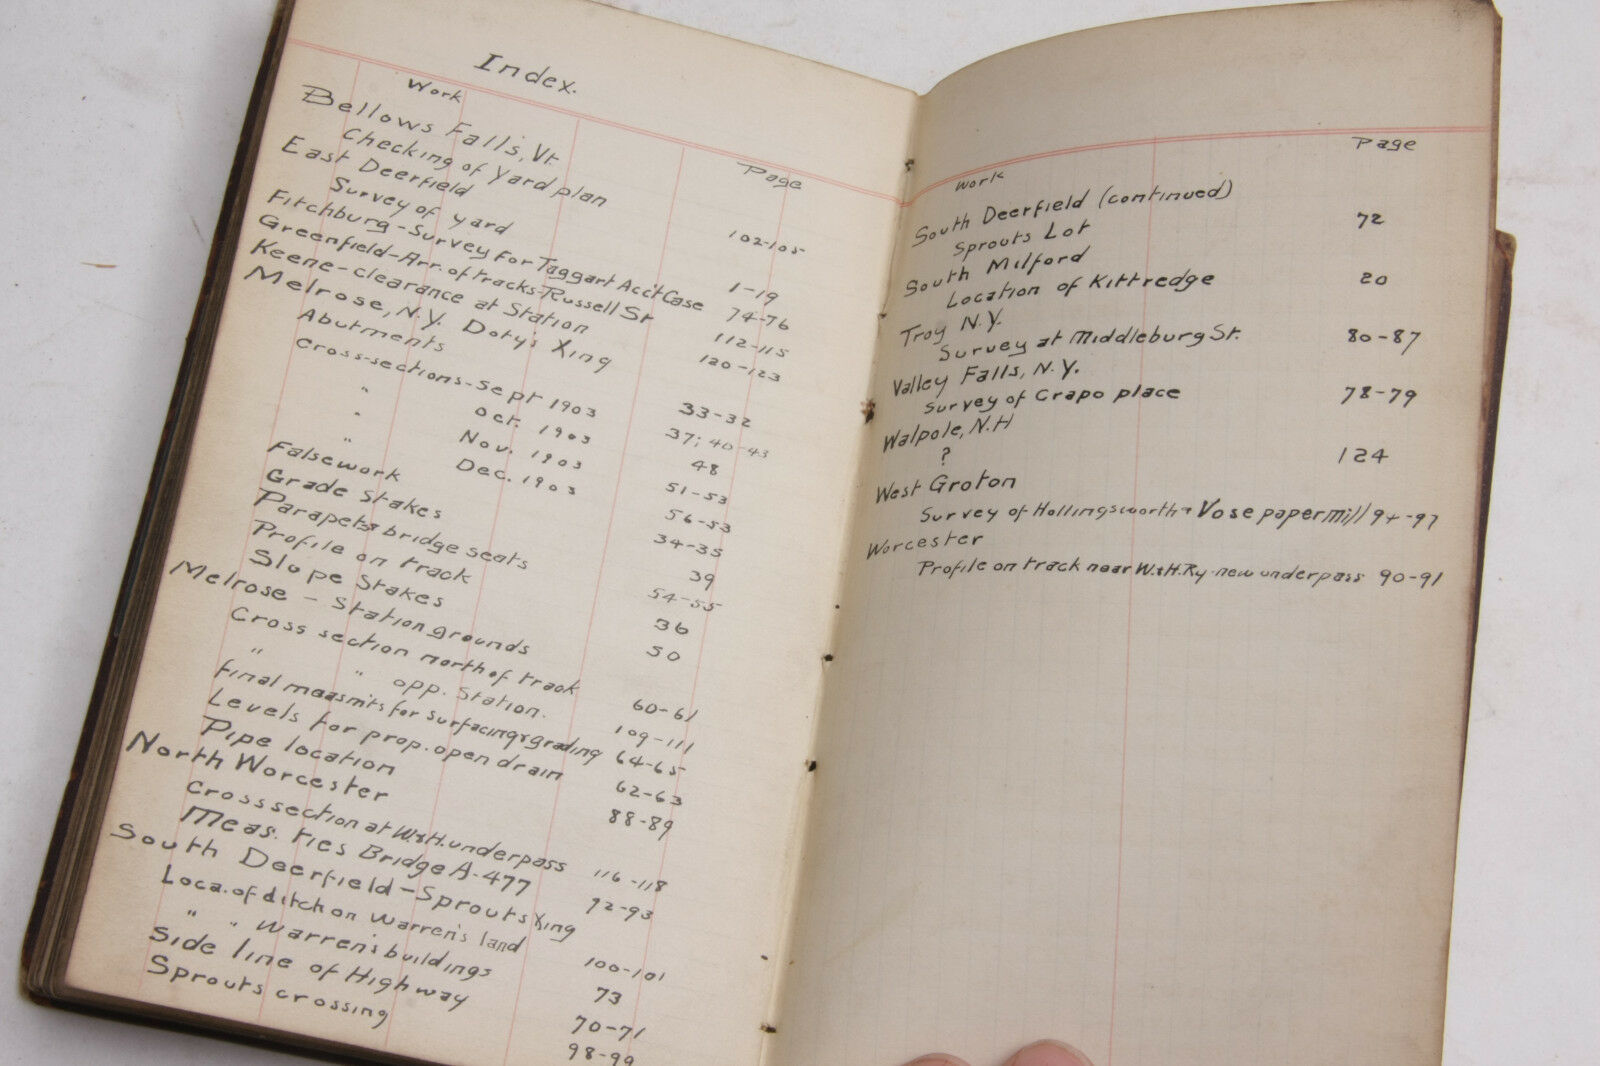 Index.
Work Page
Bellows Falls, Vt.
Checking of Yard plan 102-105
East Deerfield
Survey of yard 1-19
Fitchburg - Survey for Taggart Acc't Case 74-76
Greenfield - Arr. of tracks - Russell St 112-115
Keene - clearance at Station 120-123
Melrose, N.Y. Doty's Xing
Abutments 33-32
Cross-sections - Sept 1903 37; 40-43
" Oct. 1903 48
" Nov. 1903 51-53
" Dec. 1903 56-53
Falsework 34-35
Grade Stakes 39
Parapets & bridge seats 54-55
Profile on track 36
Slope Stakes 50
Melrose - Station grounds
Cross section north of track 60-61
" " opp. Station. 109-111
Final measm'ts for surfacing & grading 64-65
Levels for prop. open drain 62-63
Pipe location 88-89
North Worcester
Cross section at W.&H. underpass 116-118
Meas. ties Bridge A-477 92-93
South Deerfield - Sprouts Xing
Loca. of ditch on Warren's land 100-101
" " Warren's buildings 73
Side line of Highway 70-71
Sprouts crossing 98-99
Work Page
South Deerfield (continued)
Sprouts Lot 72
South Milford
Location of Kittredge 20
Troy N.Y.
Survey at Middleburg St. 80-87
Valley Falls, N.Y.
Survey of Crapo place 78-79
Walpole, N.H
? 124
West Groton
Survey of Hollingsworth & Vose paper mill 94-97
Worcester
Profile on track near W.&H.Ry. new underpass 90-91